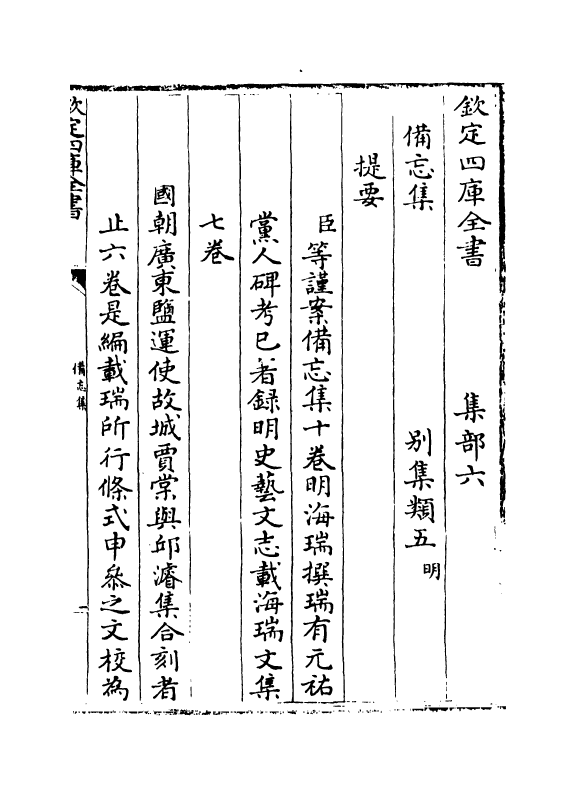 欽定四庫全書　集部六
備忘集　别集類五明
提要
臣等謹案備忘集十卷明海瑞撰瑞有元祐
黨人碑考已著録明史藝文志載海瑞文集
七卷
國朝廣東鹽運使故城賈棠與邱濬集合刻者
止六卷是編載瑞所行條式申叅之文校為
欽定四庫全書
備忘集
一